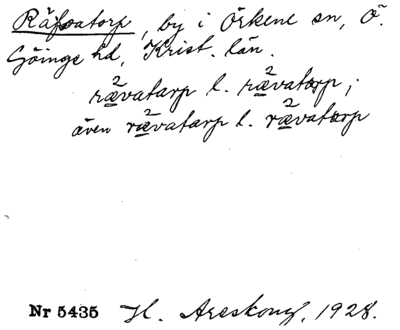 Räfvatorp, by i Örkene sn, Ö.
Göinge hd, Krist. län.
rævatarp l. rævatorp;
även rævatarp l. rævatorp
Nr 5435 H. Areskoug, 1928.